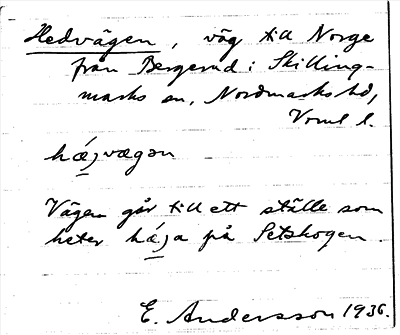 Hedvägen, väg till Norge
från Bergerud i Skilling-
marks sn, Nordmarks hd,
Vrml l.
hǽjvægən
Vägen går till ett ställe som
heter hǽja på Setskogen.
E. Andersson 1936.